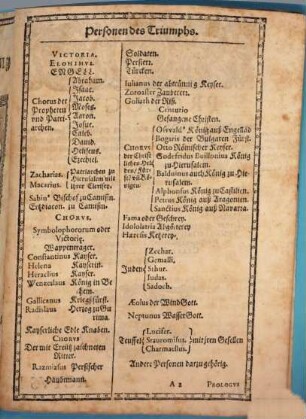 Personen des Triumphs.
VICTORIA.
ELOHIHVI.
ENGELL.
Chorus der Propheten vnd Patriarchen.
Abraham.
Isaac.
Jacob.
Moses.
Aaron.
Josue.
Caleb.
Dauid.
Heliseus.
Ezechiel.
Zacharias.
Macarius.
Patriarchen zu
Hierusalem mit
jhrer Clerisey.
CHORVS.
Symbolophororum oder
Victoriæ.
Wappentrager.
Constantinus Keyser.
Helena Keyserin.
Heraclius Keyser.
Wenceslaus König in Behem.
Gallicanus Kriegsfürst.
Radislaus Hertzog zu
Kayserliche Edle Knaben.
CHORVS
Der mit Creütz zaichneten
Ritter.
Razmiasus Persischer
Haubtmann.
Soldaten.
Persier.
Türcken.
Iulianus der abtrünnig Keyser.
Zoroaster Zauberer.
Goliath der Riß.
Gefangene Christen.
Oswald König auß Engelland
Bogoris der Bulgaren Fürst.
Otto Römischer Keyser.
Godefridus Bullionius König
zu Hierusalem.
Balduinus auch König zu Hierusalem.
Alphonsus König zu Castilien.
Petrus König auß Aragonien.
Sanctius König auß Nauarra.
Fama oder Geschrey.
Idololatria Abgötterey
Hæresis Ketzerey.
Juden
Zechar.
Gemalli.
Sthur.
Iudas.
Sadoch.
Æolus der WindGott.
Neptunus WasserGott.
Teuffel
Lucifer.
Stauromisus.
Charmællus.
mit jren Gesellen
Andere Personen darzu gehörig.
A 2 PROLOGVS